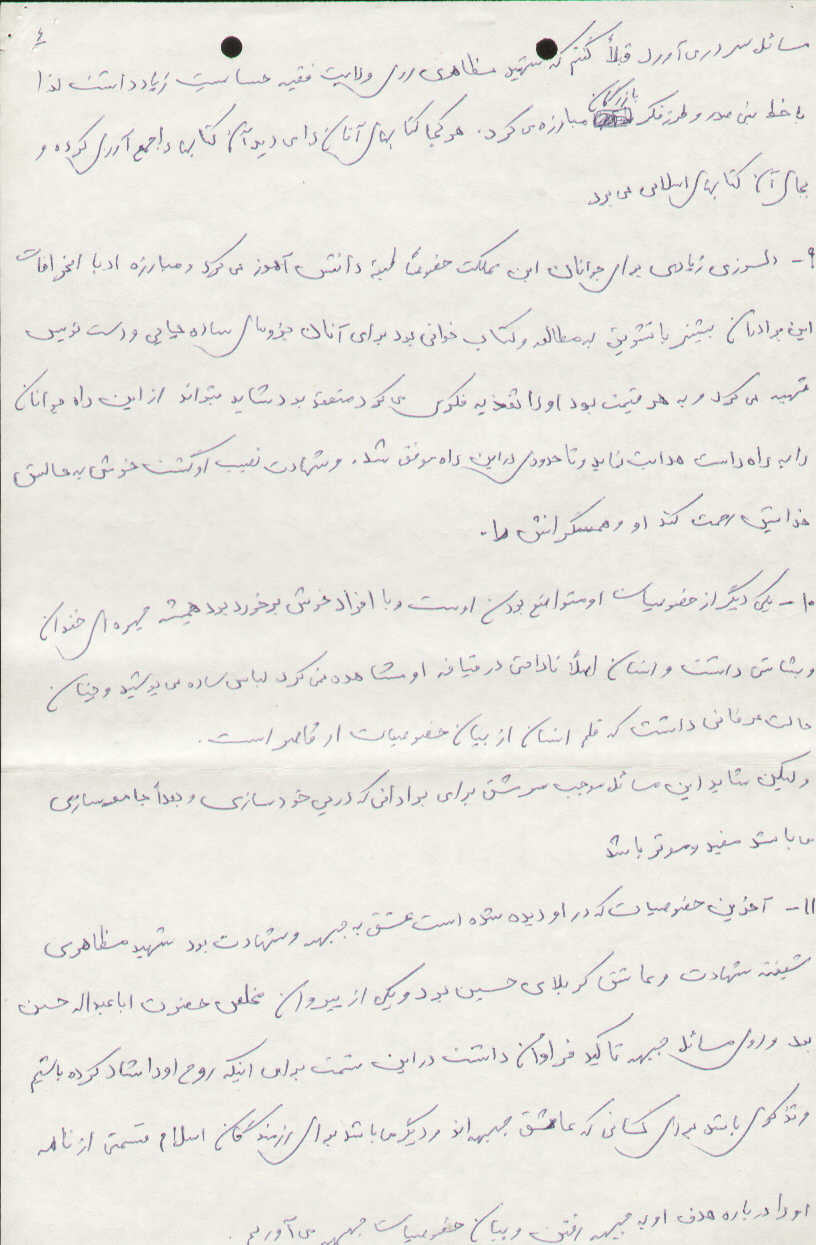 ۴
مسائل سر در می آورد قبلاً گفتم که شهید مظاهری روی ولایت فقیه حساسیت زیاد داشت لذا
با خط بنی صدر و طرز فکر بازرگان مبارزه می کرد. هر کجا کتابهای آنان را می دید آن کتابها را جمع آوری کرده و
بجای آن کتابهای اسلامی می برد
۹- دلسوزی زیادی برای جوانان این مملکت خصوصاً طبقه دانش آموز می کرد و مبارزه او با انحرافات
این برادران بیشتر با تشویق به مطالعه و کتاب خوانی بود برای آنان جزوهای ساده چاپی و دست نویس
تهیه می کرد و به هر قیمت بود او را تغذیه فکری می کرد معتقد بود شاید بتواند از این راه جوانان
را به راه راست هدایت نماید و تا حدودی در این راه موفق شد. و شهادت نصیب او گشت خوش به حالش
خدایش رحمت کند او و همسنگرانش را.
۱۰- یکی دیگر از خصوصیات او متواضع بودن اوست و با افراد خوش برخورد بود همیشه چهره ای خندان
و بشاش داشت و انسان اصلاً ناراحتی در قیافه او مشاهده نمی کرد لباس ساده می پوشید و چنان
حالت عرفانی داشت که قلم انسان از بیان خصوصیات او قاصر است.
ولیکن شاید این مسائل موجب سرمشق برای برادرانی که در پی خودسازی و بعداً جامعه سازی
می باشند مفید و موثر باشد
۱۱- آخرین خصوصیات که در او دیده شده است عشق به جبهه و شهادت بود شهید مظاهری
شیفته شهادت و عاشق کربلای حسین بود و یکی از پیروان مخلص حضرت اباعبداله حسین
بود و روی مسائل جبهه تاکید فراوان داشت در این قسمت برای اینکه روح او را شاد کرده باشیم
و تذکری باشد برای کسانی که عاشق جبهه اند و دیگر می باشد برای رزمندگان اسلام قسمتی از نامه
او را درباره هدف او به جبهه رفتن و بیان خصوصیات جبهه می آوریم.